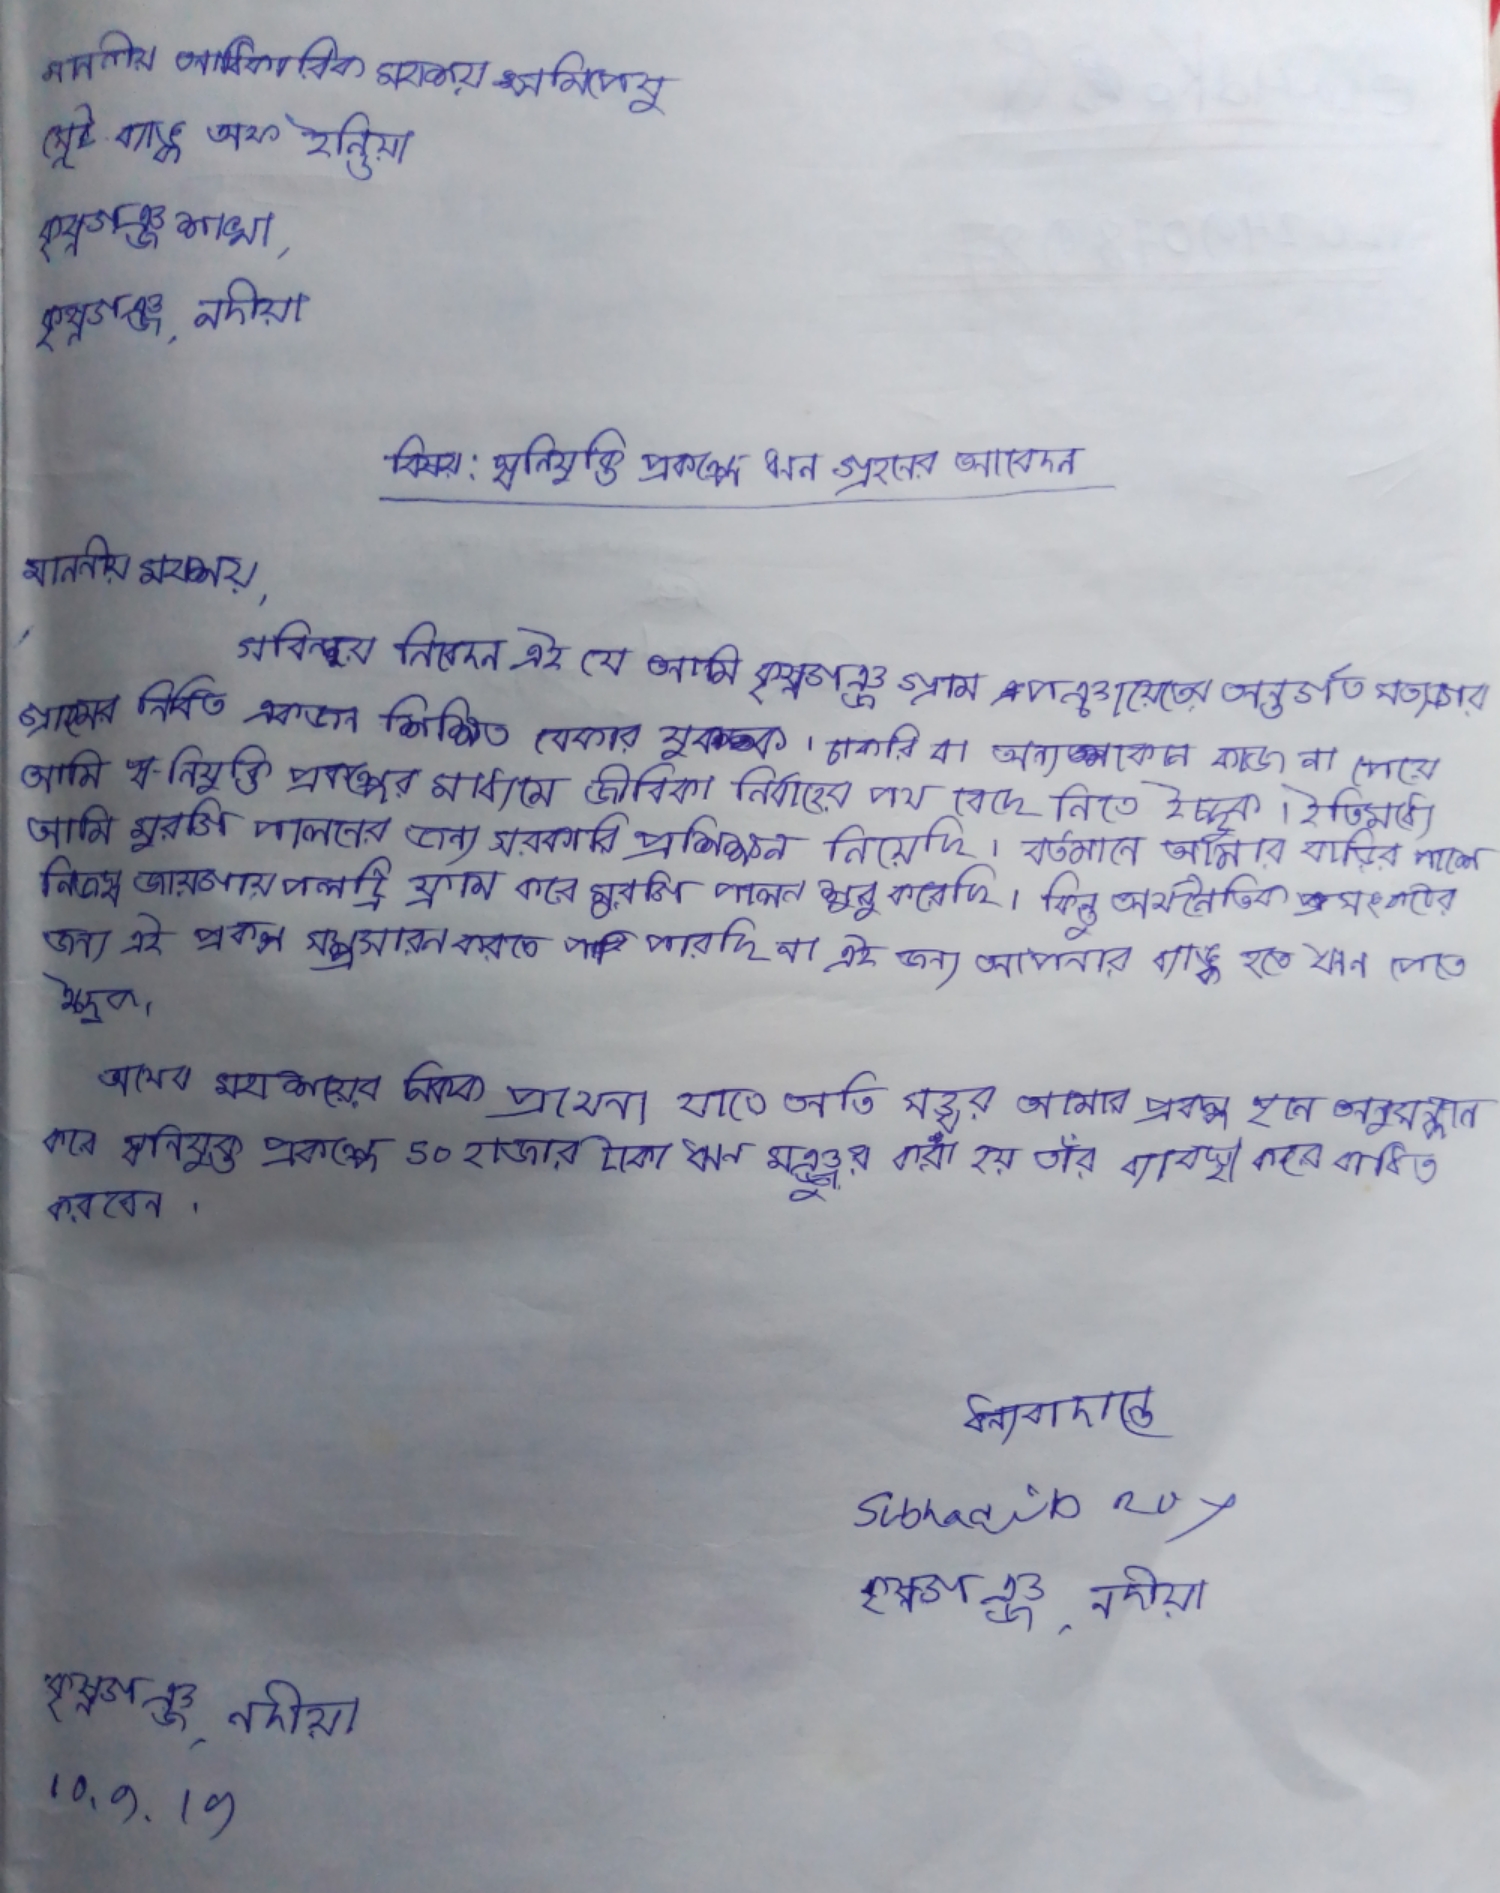 মাননীয় আধিকারিক মহাশয় সমিপেষু
স্টেট ব্যাঙ্ক অফ ইন্ডিয়া
কৃষ্ণগঞ্জ শাখা,
কৃষ্ণগঞ্জ, নদীয়া
বিষয়: স্বনিযুক্তি প্রকল্পে ঋন গ্রহনের আবেদন
মাননীয় মহাশয়,
সবিনয় নিবেদন এই যে আমি কৃষ্ণগঞ্জ গ্রাম পঞ্চায়েতের অন্তর্গত
গ্রামের একজন শিক্ষিত বেকার যুবক। চাকরি বা অন্য কোন কাজ না পেয়ে
আমি স্ব-নিযুক্তি প্রকল্পের মাধ্যমে জীবিকা নির্বাহের পথ বেছে নিতে ইচ্ছুক। ইতিমধ্যে
আমি মুরগি পালনের জন্য সরকারি প্রশিক্ষন নিয়েছি। বর্তমানে আমার বাড়ির পাশে
নিজস্ব জায়গায় পলট্রি ফ্রাম করে মুরগি পালন শুরু করেছি। কিন্তু অর্থনৈতিক সংকটের
জন্য এই প্রকল্প সম্প্রসারন করতে পারছি না এই জন্য আপনার ব্যাঙ্ক হতে ঋন পেতে
ইচ্ছুক।
অথেব মহাশয়ের নিকট প্রাথেনা যাতে অতি সত্ত্বর আমার প্রকল্প অনুসন্ধান
করে স্বনিযুক্ত প্রকল্পে 50 হাজার টাকা ঋন মঞ্জুর করা হয় তাঁর ব্যাবস্থা করে বাধিত
করবেন।
ধন্যবাদান্তে
Subhadib roy
কৃষ্ণগঞ্জ, নদীয়া
কৃষ্ণগঞ্জ, নদীয়া
10.9.19